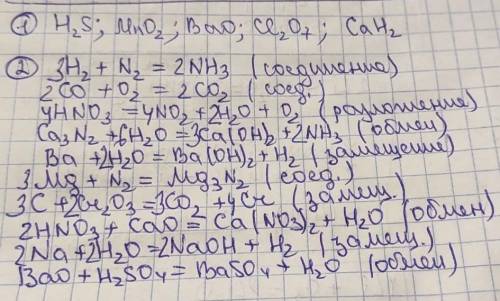 ① H₂S; MnO₂; BaO; Cl₂O₇; CaH₂
② 3H₂ + N₂ = 2NH₃ (соединение)
2CO + O₂ = 2CO₂ (соед.)
4HNO₃ = 4NO₂ + 2H₂O + O₂ (разложение)
Ca₃N₂ + 6H₂O = 3Ca(OH)₂ + 2NH₃ (обмен)
Ba + 2H₂O = Ba(OH)₂ + H₂ (замещение)
3Mg + N₂ = Mg₃N₂ (соед.)
3C + 2Cr₂O₃ = 3CO₂ + 4Cr (замещ.)
2HNO₃ + CaO = Ca(NO₃)₂ + H₂O (обмен)
2Na + 2H₂O = 2NaOH + H₂ (замещ.)
BaO + H₂SO₄ = BaSO₄ + H₂O (обмен)